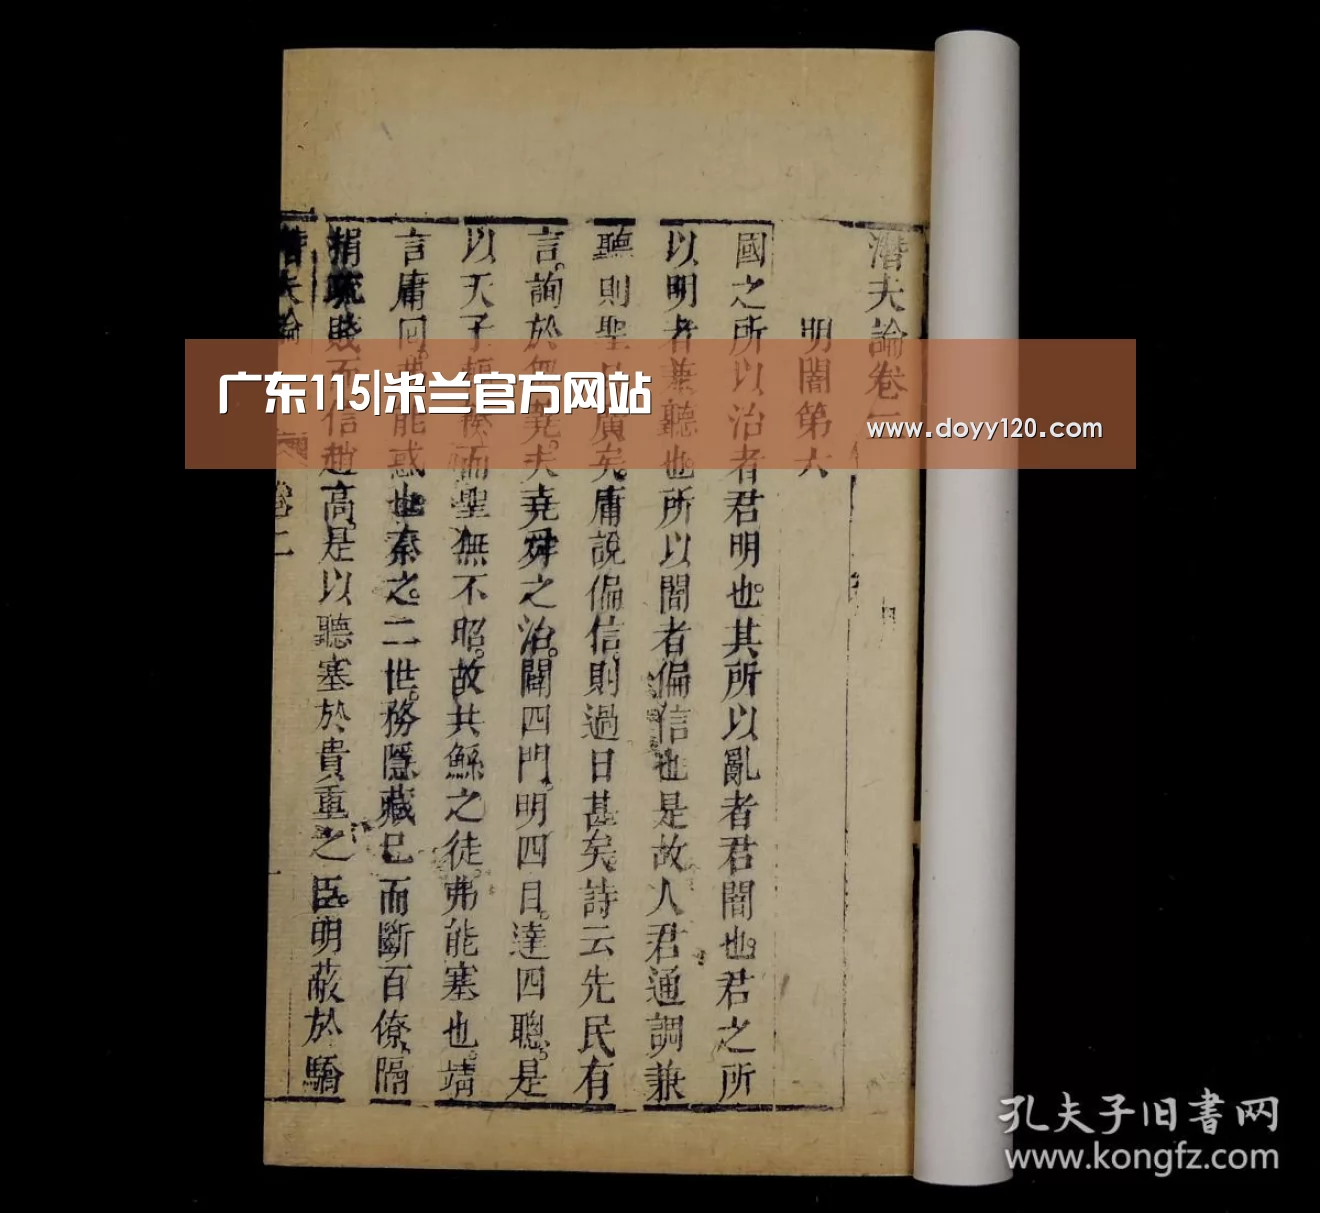 潛夫論卷二
明闇第六
國之所以治者君明也其所以亂者君闇也君之所
以明者兼聽也所以闇者偏信也是故人君通調兼
聽則聖日廣矣庸說偏信則過日甚矣詩云先民有
言詢於芻蕘夫堯舜之治闢四門明四目達四聰是
以天子輻湊而聖無不昭故共鯀之徒弗能塞也靖
言庸回弗能惑也秦之二世務隱藏已而斷百僚隔
捐疏賤而信趙高是以聽塞於貴重之臣明蔽於驕
潛夫論 卷二 一
广东115|米兰官方网站
www.doyy120.com
孔夫子旧書网
www.kongfz.com